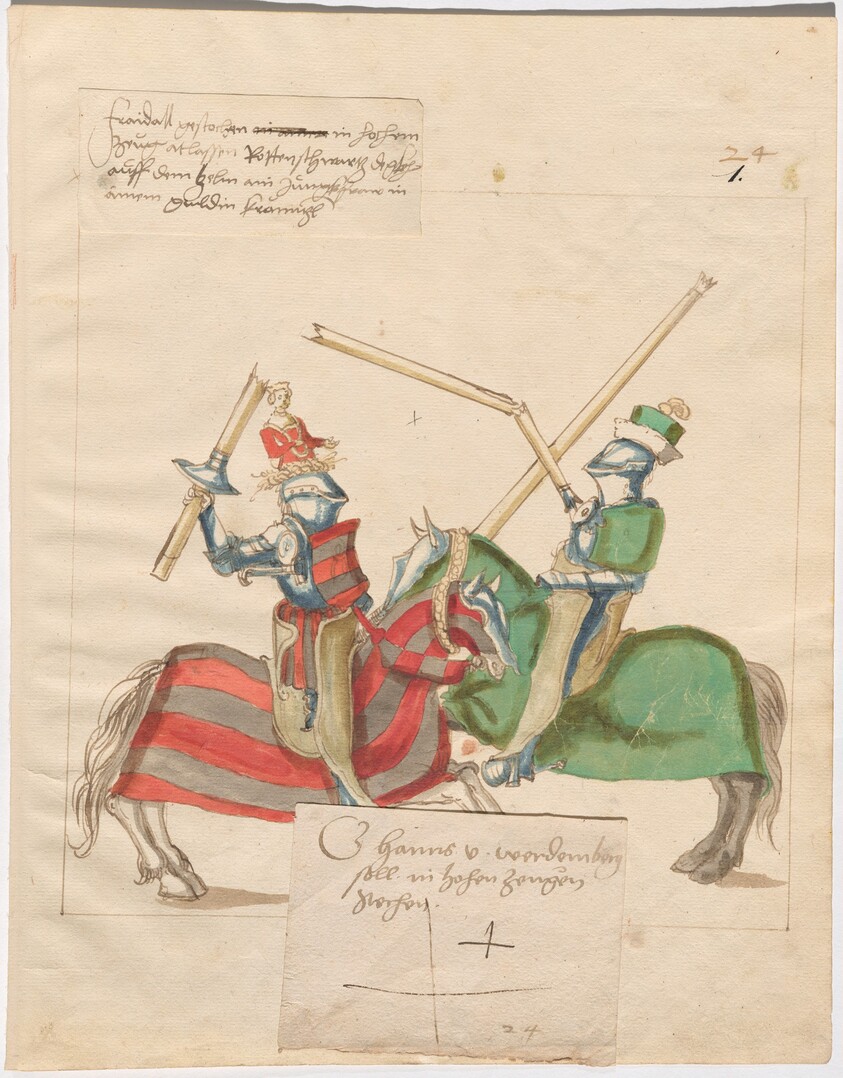 Fraidall gestochen in hochem
Zeug atlassen Rottenschwartz
auff dem helm ain Junckfraw in
ainem guldin krannzl
24
1.
G hanns v. werdemberg
soll in hohen zeugen
stechen.
24